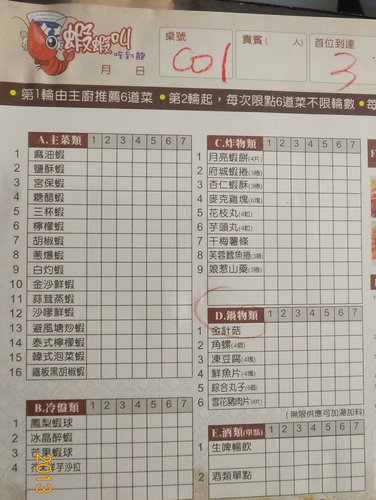 蝦蝦叫
吃到飽
月 日
桌號 貴賓( 人) 首位到達
C01 3
•第1輪由主廚推薦6道菜 •第2輪起，每次限點6道菜不限輪數
A.主菜類 1 2 3 4 5 6 7
1 麻油蝦
2 鹽酥蝦
3 宮保蝦
4 糖醋蝦
5 三杯蝦
6 檸檬蝦
7 胡椒蝦
8 蔥爆蝦
9 白灼蝦
10 金沙鮮蝦
11 蒜茸蒸蝦
12 沙嗲鮮蝦
13 避風塘炒蝦
14 泰式檸檬蝦
15 韓式泡菜蝦
16 鐵板黑胡椒蝦
B.冷盤類 1 2 3 4 5 6 7
1 鳳梨蝦球
2 冰晶醉蝦
3 芒果蝦球
4 洋芋沙拉
C.炸物類 1 2 3 4 5 6 7
1 月亮蝦餅(4片)
2 府城蝦捲(3捲)
3 杏仁蝦酥(3捲)
4 麥克雞塊(6塊)
5 花枝丸(4粒)
6 芋頭丸(4粒)
7 干梅薯條
8 芙蓉鱈魚捲(3捲)
9 娘惹山藥(3捲)
D.鍋物類 1 2 3 4 5 6 7
1 金針菇
2 角螺(4個)
3 凍豆腐(4塊)
4 鮮魚片(4塊)
5 綜合丸子(6個)
6 雪花豬肉片(4片)
(無限供應可加湯加料)
E.酒類(單點) 1 2 3 4 5 6 7
1 生啤暢飲
2 酒類單點
2013